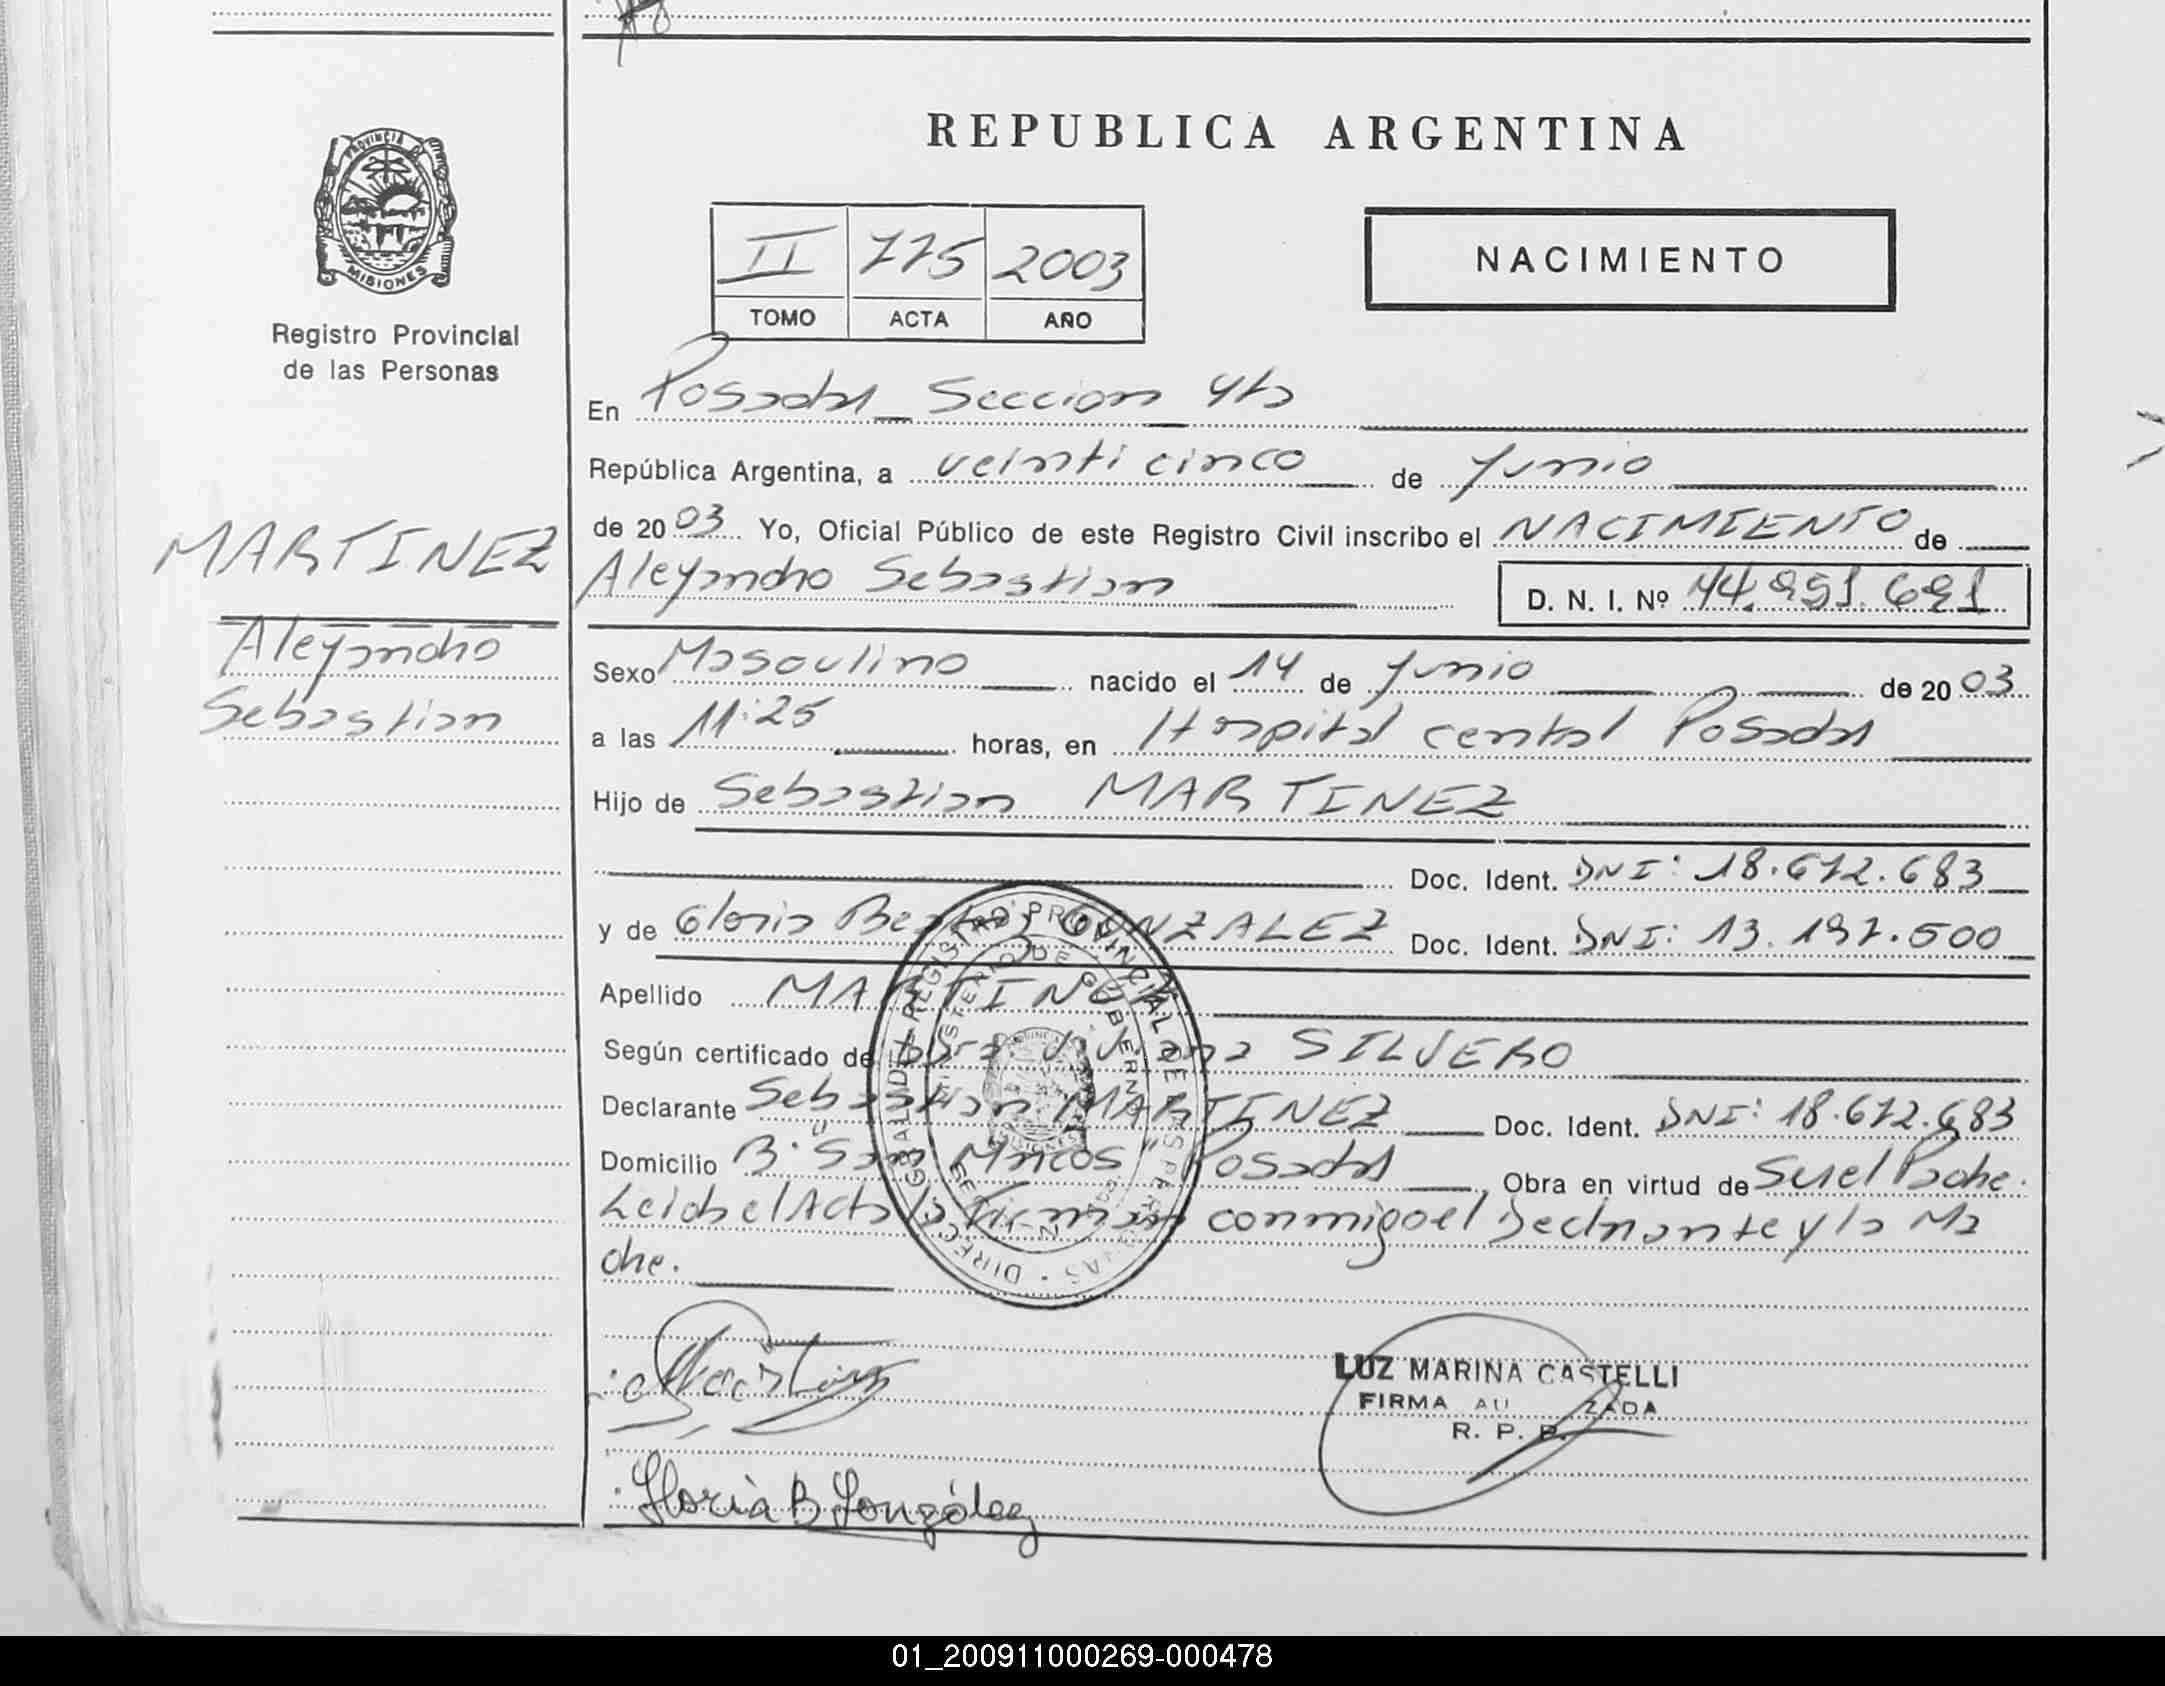 REPUBLICA ARGENTINA
PROVINCIA D
MISIONES
Registro Provincial
de las Personas
II 775 2003
TOMO ACTA AÑO
NACIMIENTO
En Posadas Seccion 4ta
República Argentina, a veinticinco de Junio
de 2003 Yo, Oficial Público de este Registro Civil inscribo el NACIMIENTO de
Alejandro Sebastian D. N. I. Nº 44.991.691
MARTINEZ
Alejandro
Sebastian
Sexo Masculino nacido el 14 de Junio de 2003
a las 11:25 horas, en Hospital central Posadas
Hijo de Sebastian MARTINEZ
Doc. Ident. DNI: 18.672.683
y de Gloria Beatriz GONZALEZ Doc. Ident. DNI: 13.197.500
Apellido MARTINEZ
Según certificado de Viviana SILVERO
Declarante Sebastian MARTINEZ Doc. Ident. DNI: 18.672.683
Domicilio B. "San Marcos" Posadas, Obra en virtud de Ser el Padre.
Leida el Acta la Firman conmigo el Declarante y la Ma
dre.
DIRECC GRAL DEL REGISTRO PROVINCIAL DE LAS PERSONAS
MINISTERIO DE GOBIERNO
Martinez
LUZ MARINA CASTELLI
FIRMA AU ZADA
R. P. P.
Gloria B González
01_200911000269-000478